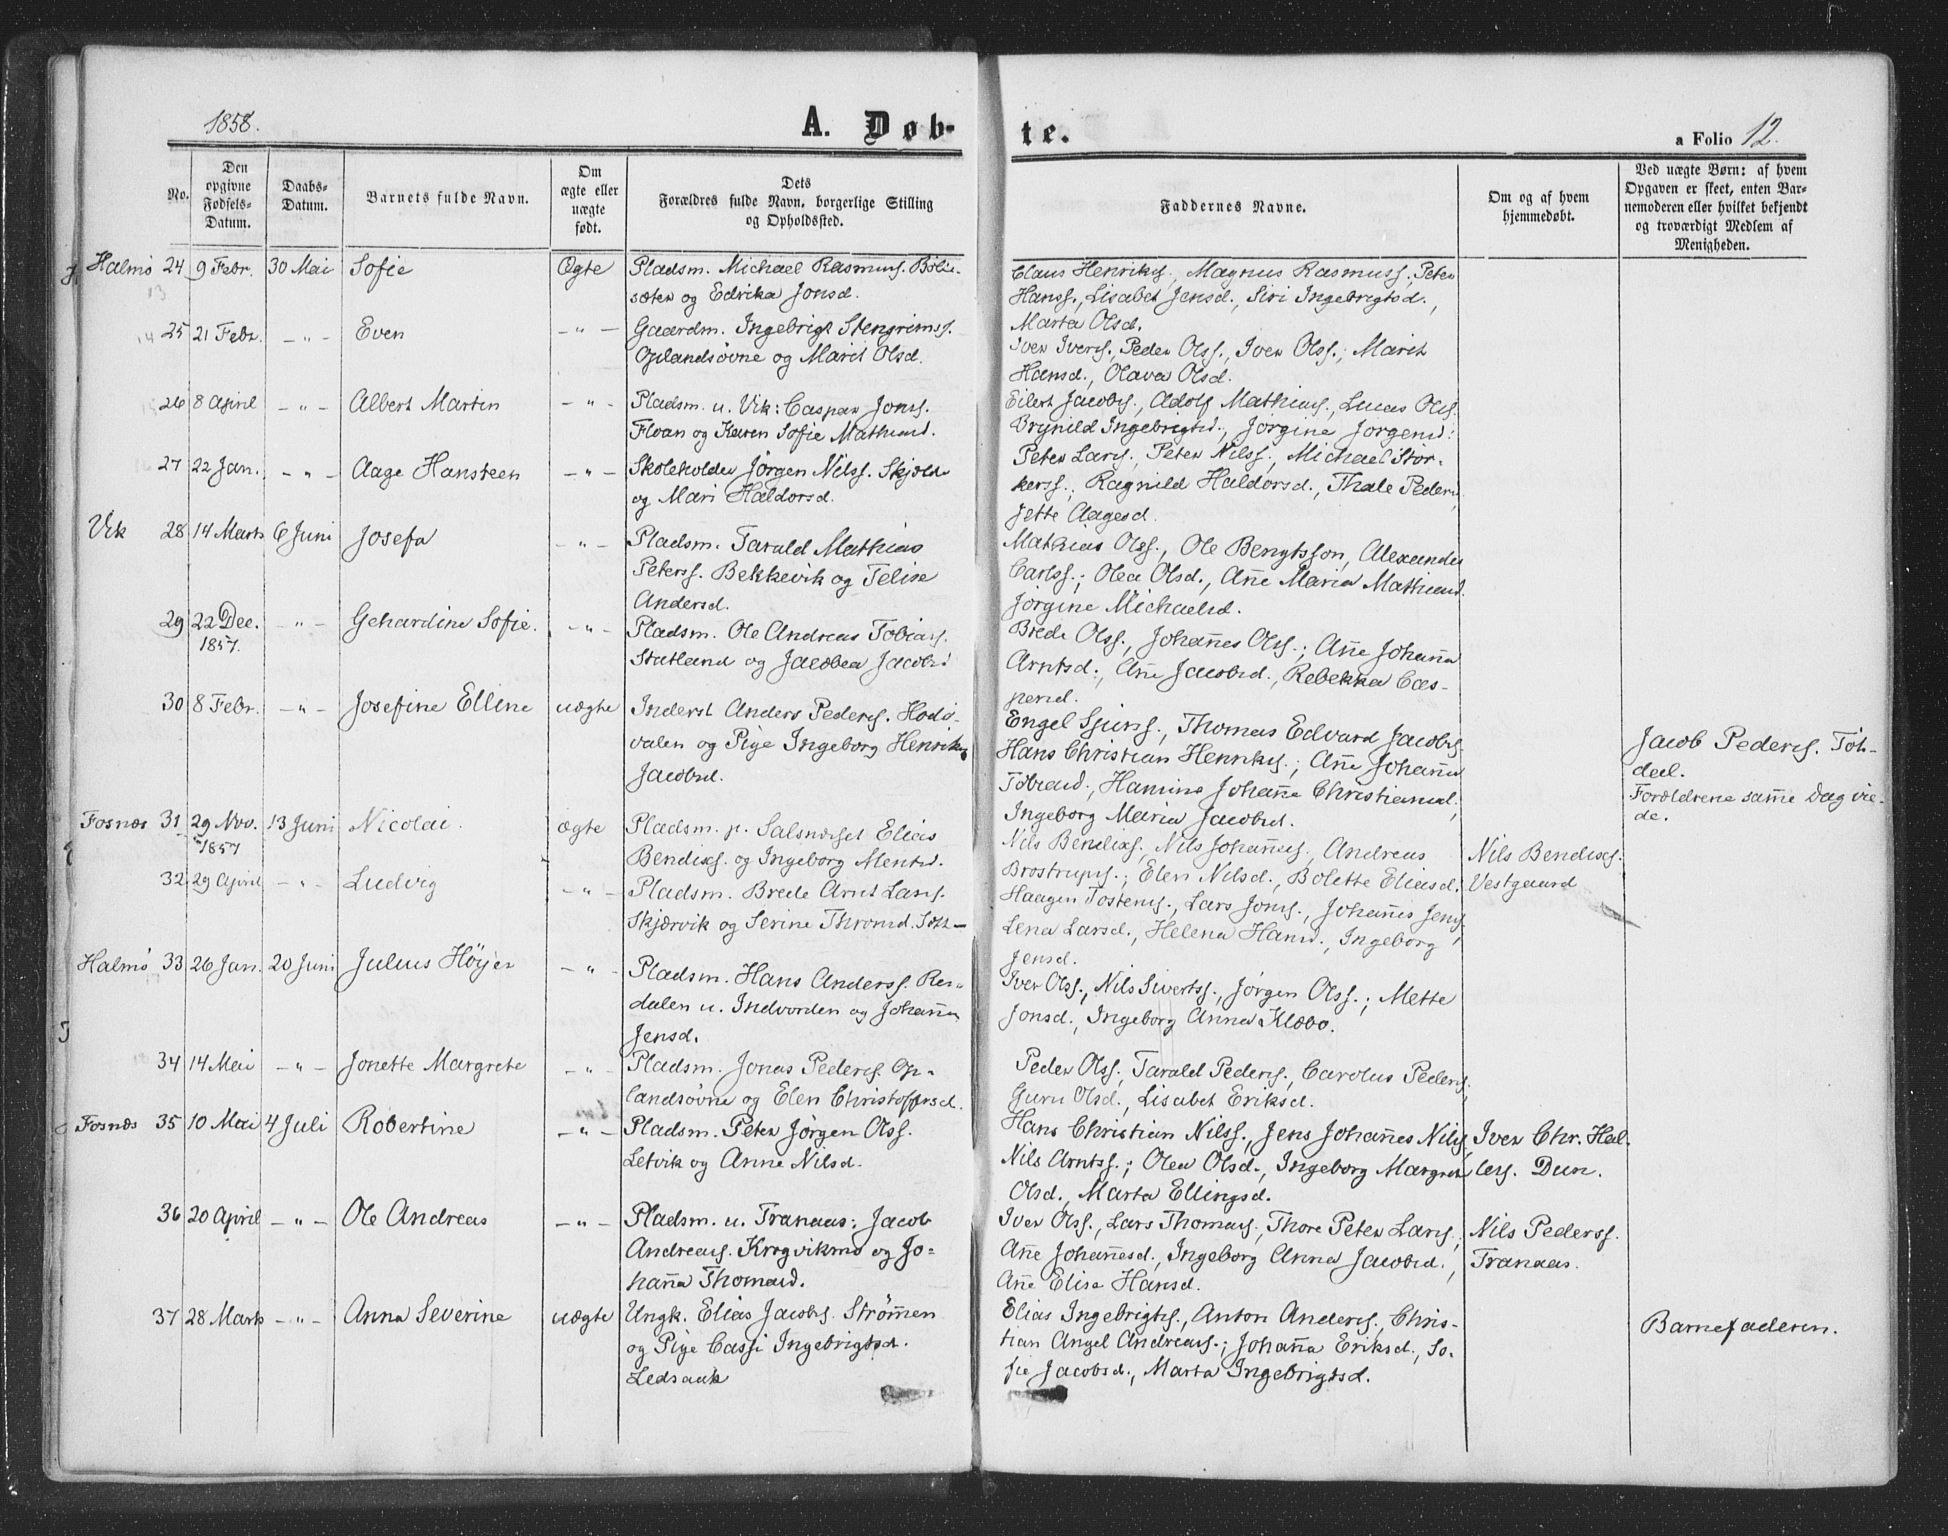 1858.
A. Døb-
te.
a Folio 12.
No.
Den opgivne Fødsels-Datum.
Daabs-Datum.
Barnets fulde Navn.
Om ægte eller uægte født.
Dets Forældres fulde Navn, borgerlige Stilling og Opholdssted.
Faddernes Navne.
Om og af hvem hjemmedøbt.
Ved uægte Børn: af hvem Opgaven er skeet, enten Barnemoderen eller hvilket bekjendt og troværdigt Medlem af Menigheden.
Halmø 24 9 Febr. 30 Mai Sofie Ægte
Pladsm. Michael Rasmuss.
sæter og Edrika Jonsd.
Claus Henriks., Magnus Rasmuss., Peter
Hanss., Lisabet Jensd., Siri Ingebrigtsd.,
Marta Olsd.
25 21 Febr. -"- Even -"-
Gaardm. Ingebrigt Stengrimss.
Oplandsøvne og Marit Olsd.
Iver Ivers., Peder Olss., Iver Olss.; Marit
Hansd., Olava Olsd.
26 8 April -"- Albert Martin -"-
Pladsm. u. Vik: Caspar Jons.
Floan og Karen Sofie Mathiasd.
Eilert Jacobs., Adolf Mathias., Lucas Ols.
Brynild Ingebrigtsd., Jørgine Jørgensd.
27 22 Jan. -"- Aage Hansteen -"-
Skoleholder Jørgen Nilss. Skjeld
og Mari Haldorsd.
Peter Lars., Peter Nilss., Michael Stor-
kerss.; Ragnild Haldorsd., Thale Pedersd.
Jette Aagesd.
Vik 28 14 Marts 6 Juni Josefa -"-
Pladsm. Tarald Mathias
Peterss. Bekkevik og Telise
Andersd.
Mathias Olss., Ole Bengtsson, Alexander
Carlss.; Olea Olsd., Añe Maria Mathiasd.
Jørgine Michaelsd.
29 22 Dec. -"- Gehardine Sofie. -"-
1857.
Pladsm. Ole Andreas Tobias.
Statland og Jacobea Jacobsd
Brede Olss., Johañes Olss.; Añe Johaña
Arntsd., Añe Jacobsd., Rebekka Cas-
persd.
30 8 Febr. -"- Josefine Elline uægte
Inderst Anders Peders. Hodø-
valen og Pige Ingeborg Henrika
Jacobsd.
Engel Sjurs., Thomas Edvard Jacobs.
Hans Christian Henriks.; Añe Johaña
Tobiasd., Hanina Johaña Christiansd.,
Ingeborg Maria Jacobsd.
Jacob Peders. Tøt-
dal.
Forældrene same Dag vie-
de.
Fosnæs 31 29 Nov. 13 Juni Nicolai. ægte
1857
Pladsm. p. Salsnæset Elias
Bendixs. og Ingeborg Mentsd.
Nils Bendixs., Nils Johañes., Andreas
Brostrups.; Elen Nilsd., Bolette Eliasd.
Nils Bendixs.
Vestgaard
32 29 April -"- Ludvig -"-
Pladsm. Brede Arnt Lars.
Skjærvik og Serine Thromd.
Haagen Tostens., Lars Jons., Johañes Jens.,
Lena Larsd., Helena Hansd., Ingeborg
Jensd.
Halmø 33 26 Jan. 20 Juni Julius Høyer -"-
Pladsm. Hans Anderss. Ren-
dalen u. Indvorden og Johaña
Jensd.
Iver Olss., Nils Siverts., Jørgen Olss.; Mette
Jonsd., Ingeborg Anna Klæbo.
34 14 Mai -"- Jonette Margrete -"-
Pladsm. Jonas Peders. Op-
landsøvne og Elen Christoffersd.
Peder Olss., Tarald Peders., Carolus Peders.
Guru Olsd., Lisabet Eriksd.
Fosnæs 35 10 Mai 4 Juli Robertine -"-
Pladsm. Peter Jørgen Olss.
Letvik og Anne Nilsd.
Hans Christian Nilss., Jens Johañes Nilss.
Nils Arntss.; Olea Olsd., Ingeborg Margrete
Olsd., Marta Ellingsd.
Iver Chr. Hal-
lers. Dun.
36 20 April -"- Ole Andreas -"-
Pladsm. u. Tranaas: Jacob
Andreas. Krogvikmo og Jo-
haña Thomasd.
Iver Olss., Lars Thomas., Thore Peter Lars.,
Añe Johañesd., Ingeborg Anna Jacobsd.,
Añe Elise Hansd.
Nils Pederss.
Tranaas.
37 28 Marts -"- Anna Severine uægte
Ungk. Elias Jacobs. Strømen
og Pige Cassi Ingebrigtsd.
Ledsaak
Elias Ingebrigts., Anton Anders., Chris-
tian Angel Andreas.; Johaña Eriksd., So-
fie Jacobsd., Marta Ingebrigtsd.
Barnefaderen.